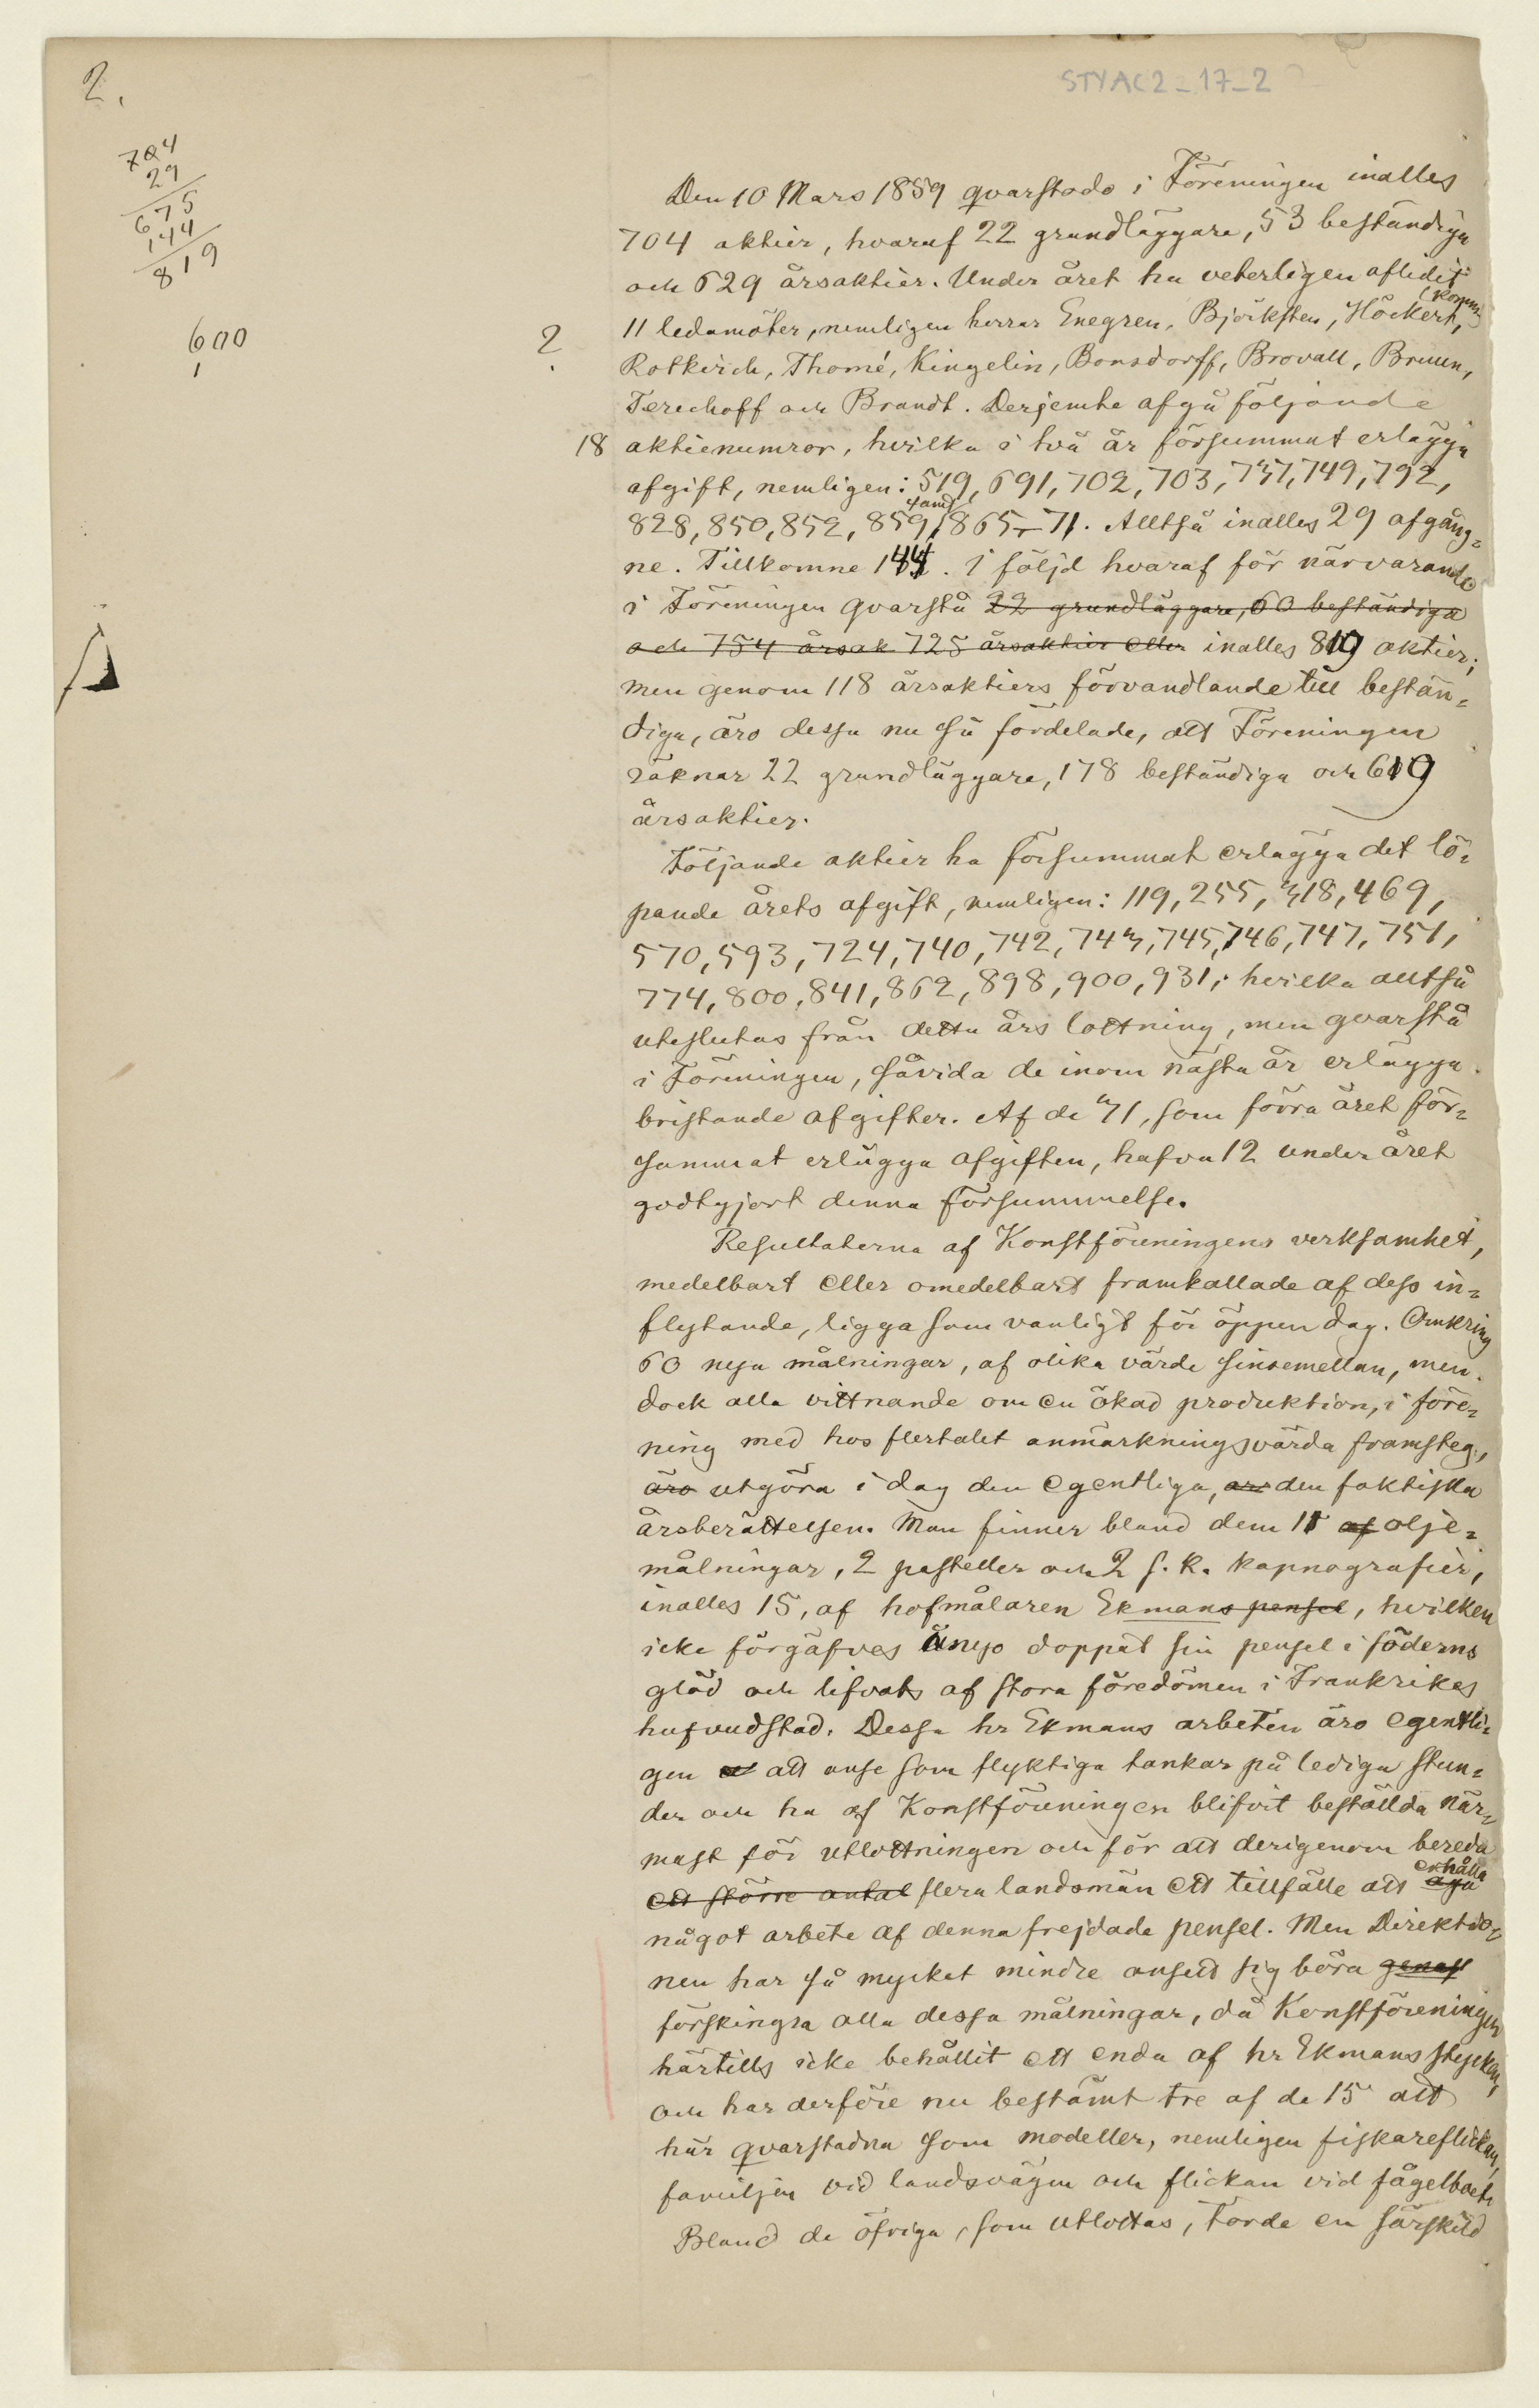 2.
STYAC2_17_2
704
29
675
144
819
600
?
18
Den 10 Mars 1859 qvarstodo i Föreningen inalles
704 aktier, hvaraf 22 grundläggare, 53 beständiga
och 629 årsaktier. Under året ha veterligen aflidit
11 ledamöter, nemligen herrar Enegren, Björksten, Höckert,
Rotkirch, Thomé, Kingelin, Bonsdorff, Brovall, Bruun,
Terichoff och Brandt. Derjemte afgå följande
aktienumror, hvilka i två år försummat erlägga
afgift, nemligen: 519, 691, 702, 703, 737, 749, 792,
828, 850, 852, 859, 865–71. Alltså inalles 29 afgång=
ne. Tillkomne 144. I följd hvaraf för närvarande
i Föreningen qvarstå 22 grundläggare, 60 beständiga
och 754 årsak 725 årsaktier eller inalles 819 aktier;
men genom 118 årsaktiers förvandlande till bestän=
diga, äro dessa nu så fördelade, att Föreningen
räknar 22 grundläggare, 178 beständiga och 619
årsaktier.
Följande aktier ha försummat erlägga det lö=
pande årets afgift, nemligen: 119, 255, 318, 469,
570, 593, 724, 740, 742, 743, 745, 746, 747, 751,
774, 800, 841, 862, 898, 900, 931; hvilka alltså
uteslutas från detta års lottning, men qvarstå
i Föreningen, såvida de inom nästa år erlägga
bristande afgifter. Af de 31, som förra året för=
summat erlägga afgiften, hafva 12 under året
godtgjort denna försummelse.
Resultaterna af Konstföreningens verksamhet,
medelbart eller omedelbart framkallade af dess in=
flytande, ligga som vanligt för öppen dag. Omkring
60 nya målningar, af olika värde sinsemellan, men
dock alla vittnande om en ökad produktion, i före=
ning med hos flertalet anmärkningsvärda framsteg,
äro utgöra i dag den egentliga, den faktiska
årsberättelsen. Man finner bland dem 11 af olje=
målningar, 2 pasteller och 2 s. k. kapnografier,
inalles 15, af hofmålaren Ekmans pensel, hvilken
icke förgäfves ånyo doppat sin pensel i söderns
glöd och lifvats af stora föredömen i Frankrikes
hufvudstad. Dessa hr Ekmans arbeten äro egentli=
gen att anse som flyktiga tankar på lediga stun=
der och ha af Konstföreningen blifvit beställda när=
mast för utlottningen och för att derigenom bereda
ett större antal flera landsmän ett tillfälle att äga erhålla
något arbete af denna frejdade pensel. Men Direktio=
nen har så mycket mindre ansett sig böra genast
förskingra alla dessa målningar, då Konstföreningen
härtills icke behållit ett enda af hr Ekmans stycken,
och har derföre nu bestämt tre af de 15 att
här qvarstadna som modeller, nemligen fiskareflickan,
familjen vid landsvägen och flickan vid fågelboet.
Bland de öfriga, som utlottas, torde en särskild